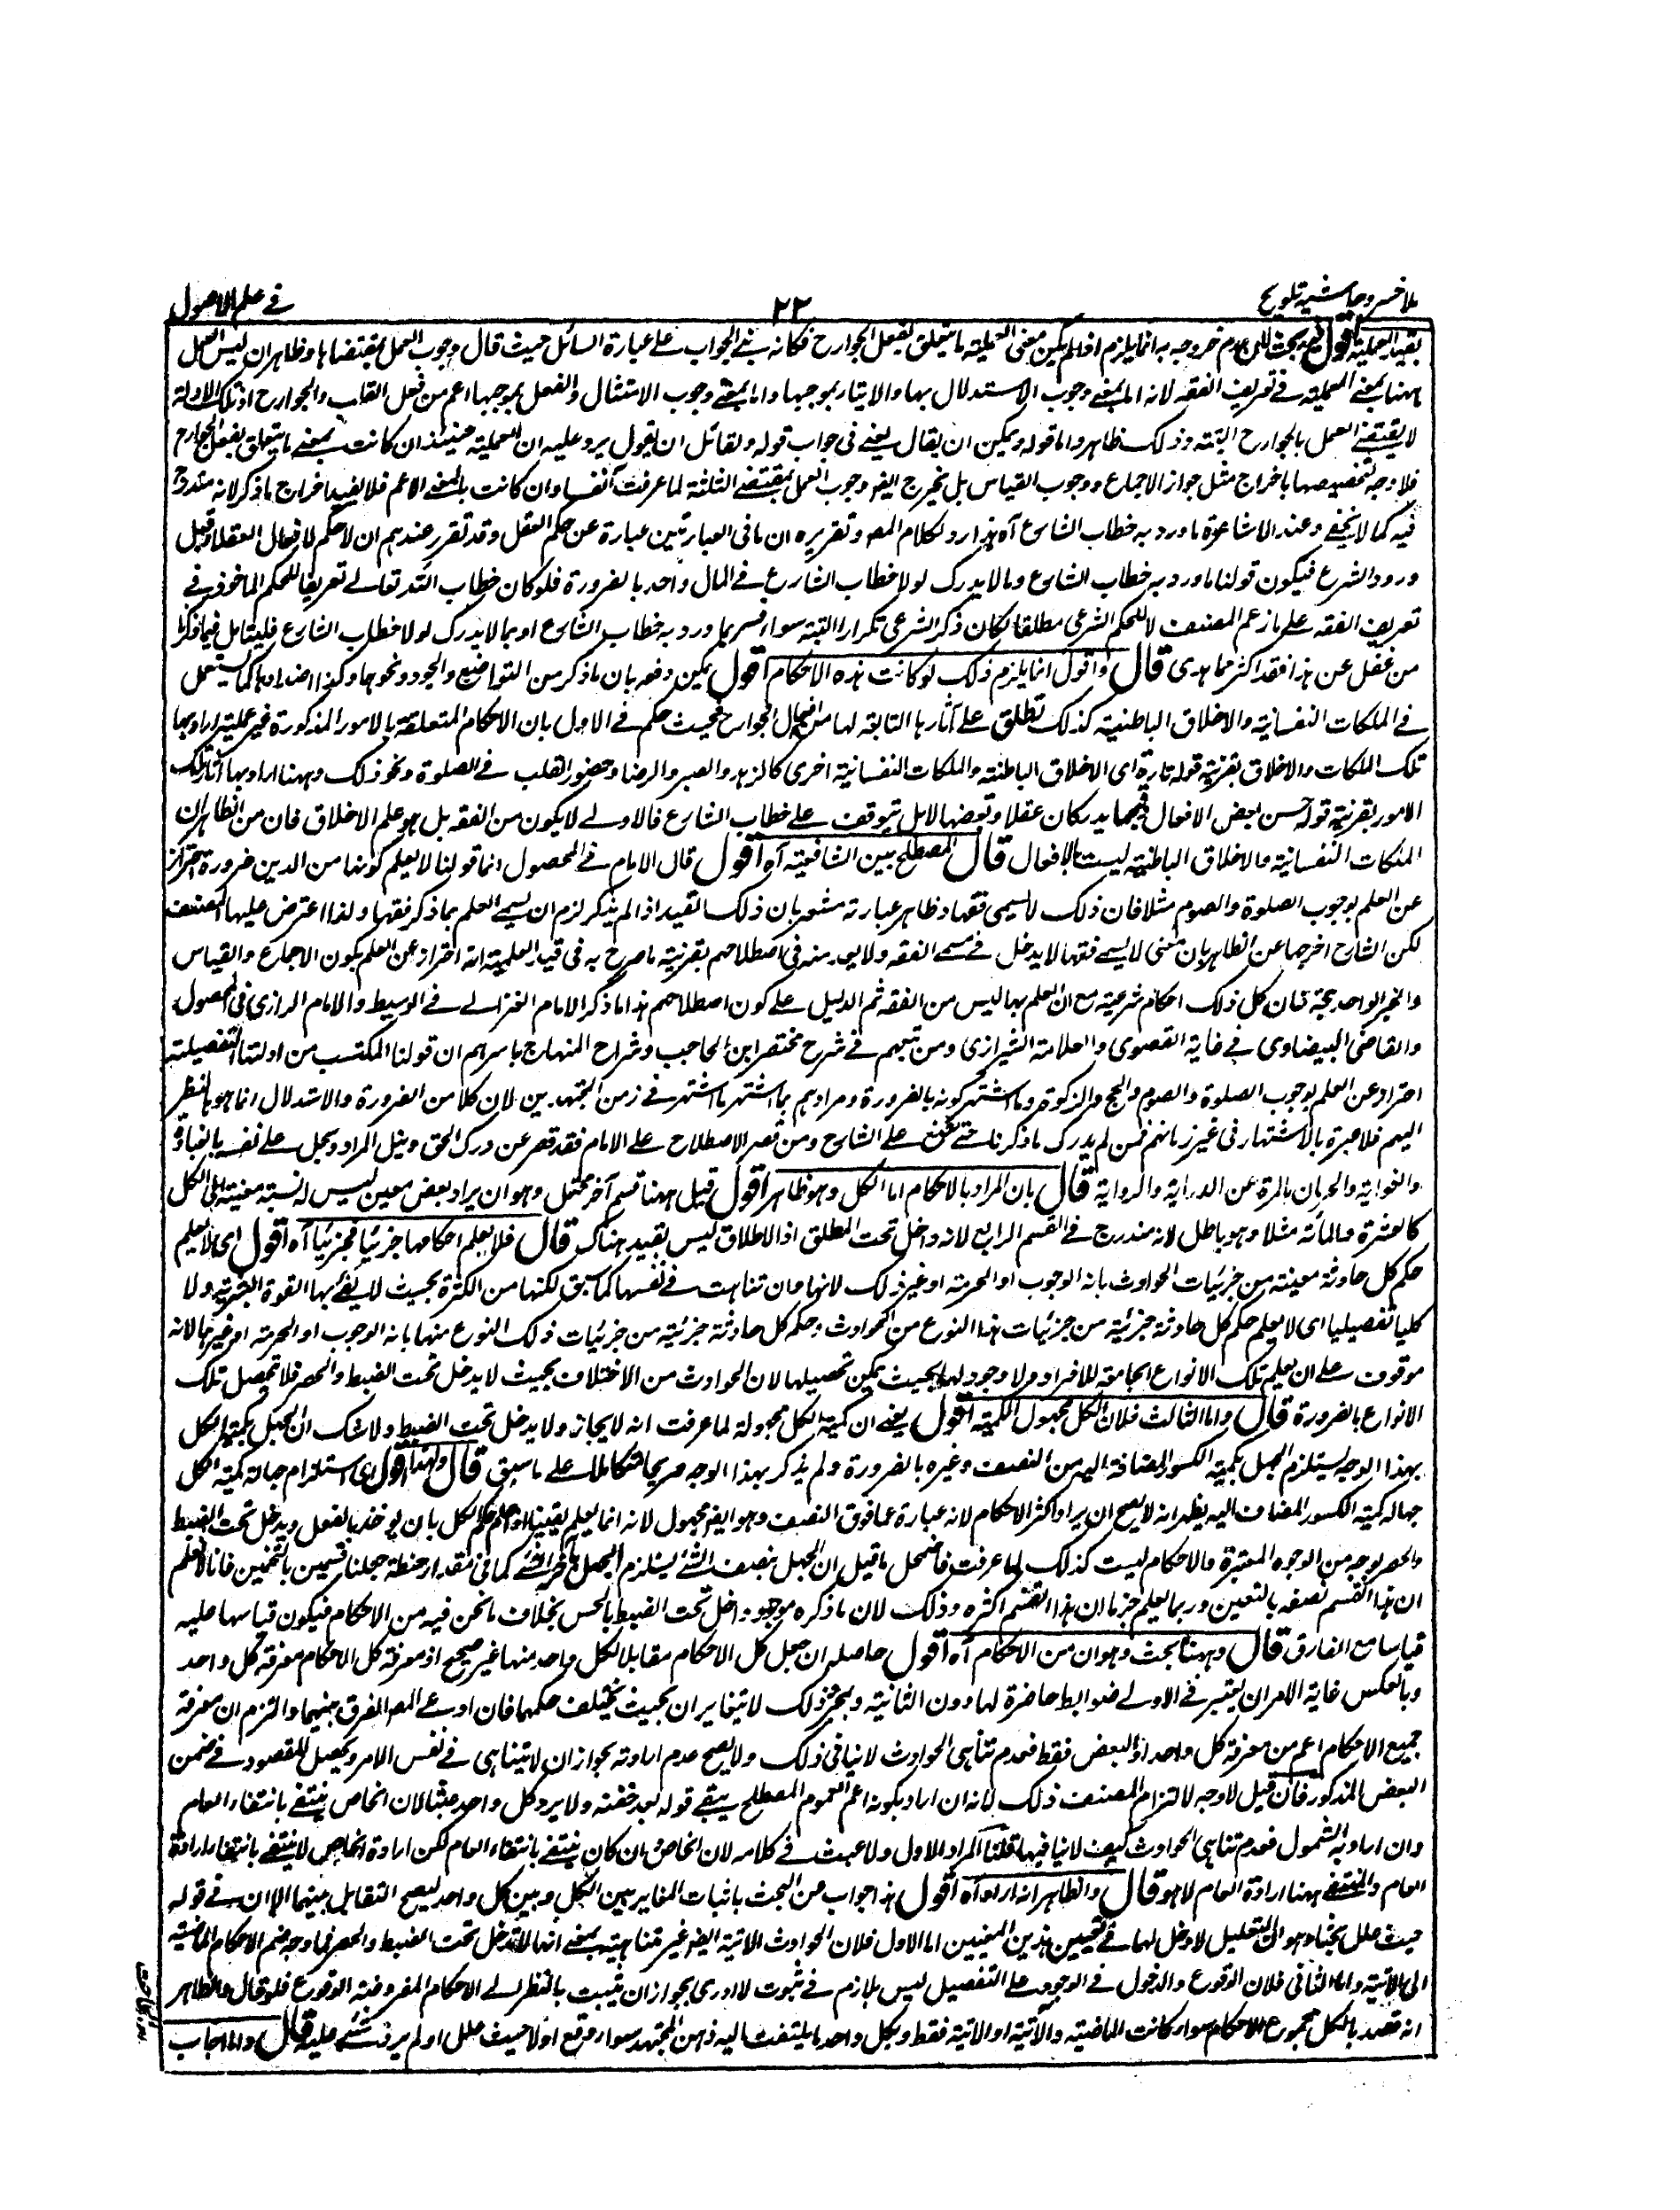 ملا خسرو حاشية تلويح ٢٢ في علم الاصول
بقيد العملية اقول فيه بحث لان عدم خروجه به انما يلزم اذا لم يكن معنى العملية ما يتعلق بفعل الجوارح فكانه بني الجواب على عبارة السائل حيث قال وجوب العمل بمقتضاها وظاهر ان ليس العمل
ههنا بمعنى العملية في تعريف الفقه لانه اما بمعنى وجوب الاستدلال بها والايتار بموجبها واما بمعنى وجوب الامتثال والفعل بموجبها اعم من فعل القلب والجوارح اذ تلك الادلة
لا يقتضي العمل بالجوارح البتة وذلك ظاهر واما قوله ويمكن ان يقال يعني في جواب قوله ولقائل ان يقول يرد عليه ان العملية حينئذ ان كانت بمعنى ما يتعلق بفعل الجوارح
فلا وجه لتخصيصها باخراج مثل جواز الاجماع ووجوب القياس بل يخرج ايضا وجوب العمل بمقتضى الثلثة لما عرفت آنفا وان كانت بالمعنى الاعم فلا يفيد اخراج ما ذكر لانه مندرج
فيه كما لا يخفى وعند الاشاعرة ما ورد به خطاب الشارع آه هذا رد لكلام المصـ وتقريره ان ما في العبارتين عبارة عن حكم العقل وقد تقرر عندهم ان لا حكم لافعال العقلاء قبل
ورود الشرع فيكون قولنا ما ورد به خطاب الشارع وما لا يدرك لولا خطاب الشارع في المال واحد بالضرورة فلو كان خطاب الله تعالى تعريفا للحكم الماخوذ في
تعريف الفقه على ما زعم المصنف لا للحكم الشرعي مطلقا لكان ذكر الشرعي تكرارا البتة سواء فسر بما ورد به خطاب الشارع او بما لا يدرك لولا خطاب الشارع فليتامل فيما ذكرنا
من غفل عن هذا فقد اكثر مما هدى قال واقول انما يلزم ذلك لو كانت هذه الاحكام اقول يمكن دفعه بان ما ذكر من التواضع والجود ونحوها وكذا اضدادها كما يستعمل
في الملكات النفسانية والاخلاق الباطنية كذلك تطلق على آثارها التابعة لها من افعال الجوارح فحيث حكم في الاول بان الاحكام المتعلقة بالامور المذكورة غير عملية اراد بها
تلك الملكات والاخلاق بقرينة قوله تارة اى الاخلاق الباطنة والملكات النفسانية اخرى كالزهد والصبر والرضا وحضور القلب في الصلوة ونحو ذلك وههنا اراد بها آثار تلك
الامور بقرينة قوله حسن بعض الافعال وقبحها يدركان عقلا وبعضها لا بل يتوقف على خطاب الشارع فالاولى لا يكون من الفقه بل هو علم الاخلاق فان من الظاهر ان
الملكات النفسانية والاخلاق الباطنية ليست بالافعال قال المصطلح بين الشافعية آه اقول قال الامام في المحصول انما قولنا لا يعلم كونها من الدين ضرورة احتراز
عن العلم بوجوب الصلوة والصوم مثلا فان ذلك لا يسمى فقها وظاهر عبارته مشعر بان ذلك القيد اذا لم يذكر لزم ان يسمى العلم بما ذكر فقها ولذا اعترض عليها المصنف
لكن الشارح اخرجها عن الظاهر بان معنى لا يسمى فقها لا يدخل في مسمى الفقه ولا يعد منه في اصطلاحهم بقرينة ما صرح به في قيد العملية انه احتراز عن العلم بكون الاجماع والقياس
والخبر الواحد حجة فان كل ذلك احكام شرعية مع ان العلم بها ليس من الفقه ثم الدليل على كون اصطلاحهم هذا ما ذكر الامام الغزالي في الوسيط والامام الرازي في المحصول
والقاضي البيضاوى في غاية القصوى والعلامة الشيرازى ومن تبعهم في شرح مختصر ابن الحاجب وشراح المنهاج باسرهم ان قولنا المكتسب من ادلتها التفصيلية
احتراز عن العلم بوجوب الصلوة والصوم والحج والزكوة وما اشتهر كونه بالضرورة ومرادهم بما اشتهر ما اشتهر في زمن المجتهدين لان كلا من الضرورة والاستدلال انما هو بالنظر
اليهم فلا عبرة بالاشتهار في غير زمانهم فمن لم يدرك ما ذكرنا حتى شنع على الشارح ومن قصر الاصطلاح على الامام فقد قصر عن درك الحق ونيل المراد وسجل على نفسه بالغباوة
والغواية والحرمان بالمرة عن الدراية والرواية قال بان المراد بالاحكام اما الكل وهو ظاهر اقول قيل ههنا قسم آخر محتمل وهو ان يراد بعض معين ليس له نسبة معينة الى الكل
كالعشرة والمائة مثلا وهو باطل لانه مندرج في القسم الرابع لانه داخل تحت المطلق اذ الاطلاق ليس بقيد هناك قال فلا يعلم احكامها جزئيا فجزئيا آه اقول اى لا يعلم
حكم كل حادثة معينة من جزئيات الحوادث بانه الوجوب او الحرمة او غير ذلك لانها وان تناهت في نفسها كما سبق لكنها من الكثرة بحيث لا يفى بها القوة البشرية ولا
كليا تفصيليا اى لا يعلم حكم كل حادثة جزئية من جزئيات هذا النوع من الحوادث وحكم كل حادثة جزئية من جزئيات ذلك النوع منها بانه الوجوب او الحرمة او غيرها لانه
موقوف على ان يعلم تلك الانواع الجامعة للافراد ولا وجود لها بحيث يمكن تحصيلها لان الحوادث من الاختلاف بحيث لا يدخل تحت الضبط والحصر فلا تحصل تلك
الانواع بالضرورة قال واما الثالث فلان الكل مجهول الكمية اقول يعني ان كمية الكل مجهولة لما عرفت انه لا يجاز ولا يدخل تحت الضبط ولا شك ان الجهل بكمية الكل
بهذا الوجه يستلزم الجهل بكمية الكسور المضافة اليه من النصف وغيره بالضرورة ولم يذكر بهذا الوجه صريحا اتكالا على ما سبق قال ولهذا اقول اى استلزام جهالة كمية الكل
جهالة كمية الكسور المضاف اليه يظهر انه لا يصح ان يراد اكثر الاحكام لانه عبارة عما فوق النصف وهو ايضا مجهول لانه انما يعلم يقينا اذا علم الكل بان يوخذ بالفعل ويدخل تحت الضبط
والحصر بوجه من الوجوه المعتبرة والاحكام ليست كذلك لما عرفت فاضمحل ما قيل ان الجهل بنصف الشئ يستلزم الجهل باكثر الشئ كما في مقدار حنطة جعلنا قسمين بالتخمين فانا لا نعلم
ان هذا القسم نصفه بالتعيين وربما يعلم جزما ان هذا القسم اكثره وذلك لان ما ذكره موجود داخل تحت الضبط بالحس بخلاف ما نحن فيه من الاحكام فيكون قياسها عليه
قياسا مع الفارق قال وههنا بحث وهو ان من الاحكام آه اقول حاصله ان جعل كل الاحكام مقابلا لكل واحد منها غير صحيح اذ معرفة كل الاحكام معرفة كل واحد
وبالعكس غاية الامر ان يعتبر في الاولى ضوابط حاضرة لها دون الثانية وبمجرد ذلك لا يتغايران بحيث يختلف حكمهما فان ادعى المصـ الفرق بينهما والتزم ان معرفة
جميع الاحكام اعم من معرفة كل واحد او البعض فقط فعدم تناهى الحوادث لا ينافى ذلك ولا يصح عدم ارادته بجواز ان لا يتناهى في نفس الامر ويحصل المقصود في ضمن
البعض المذكور فان قيل لا وجه لالتزام المصنف ذلك لانه ان اراد بكونه اعم العموم المصطلح يبقى قوله بعد ولا يرد كل واحد عبثا لان الخاص ينتفى بانتفاء العام
وان اراد به الشمول فعدم تناهى الحوادث كيف لا ينافيها قلنا المراد الاول ولا عبث في كلامه لان الخاص وان كان ينتفى بانتفاء العام لكن ارادة الخاص لا ينتفى بانتفاء ارادة
العام والمنتفى ههنا ارادة العام لا هو قال والظاهر انه اراد آه اقول هذا جواب عن البحث باثبات المغايرة بين الكل وبين كل واحد ليصح التقابل بينهما الا ان في قوله
حيث علل بحثا وهو ان التعليل لا دخل لها في تعيين هذين المعنيين اما الاول فلان الحوادث الآتية ايضا غير متناهية بمعنى انها لا تدخل تحت الضبط والحصر فما وجه ضم الاحكام الماضية
الى الآتية واما الثاني فلان الوقوع والدخول في الوجود على التفصيل ليس بلازم في ثبوت لا ادرى بجواز ان يثبت بالنظر الى الاحكام المفروضة الوقوع فلو قال والظاهر
انه قصد بالكل مجموع الاحكام سواء كانت الماضية والآتية او الآتية فقط وبكل واحد ما يلتفت اليه ذهن المجتهد سواء وقع اولا حيث علل او لم يرد شئ عليه قال واما اجاب